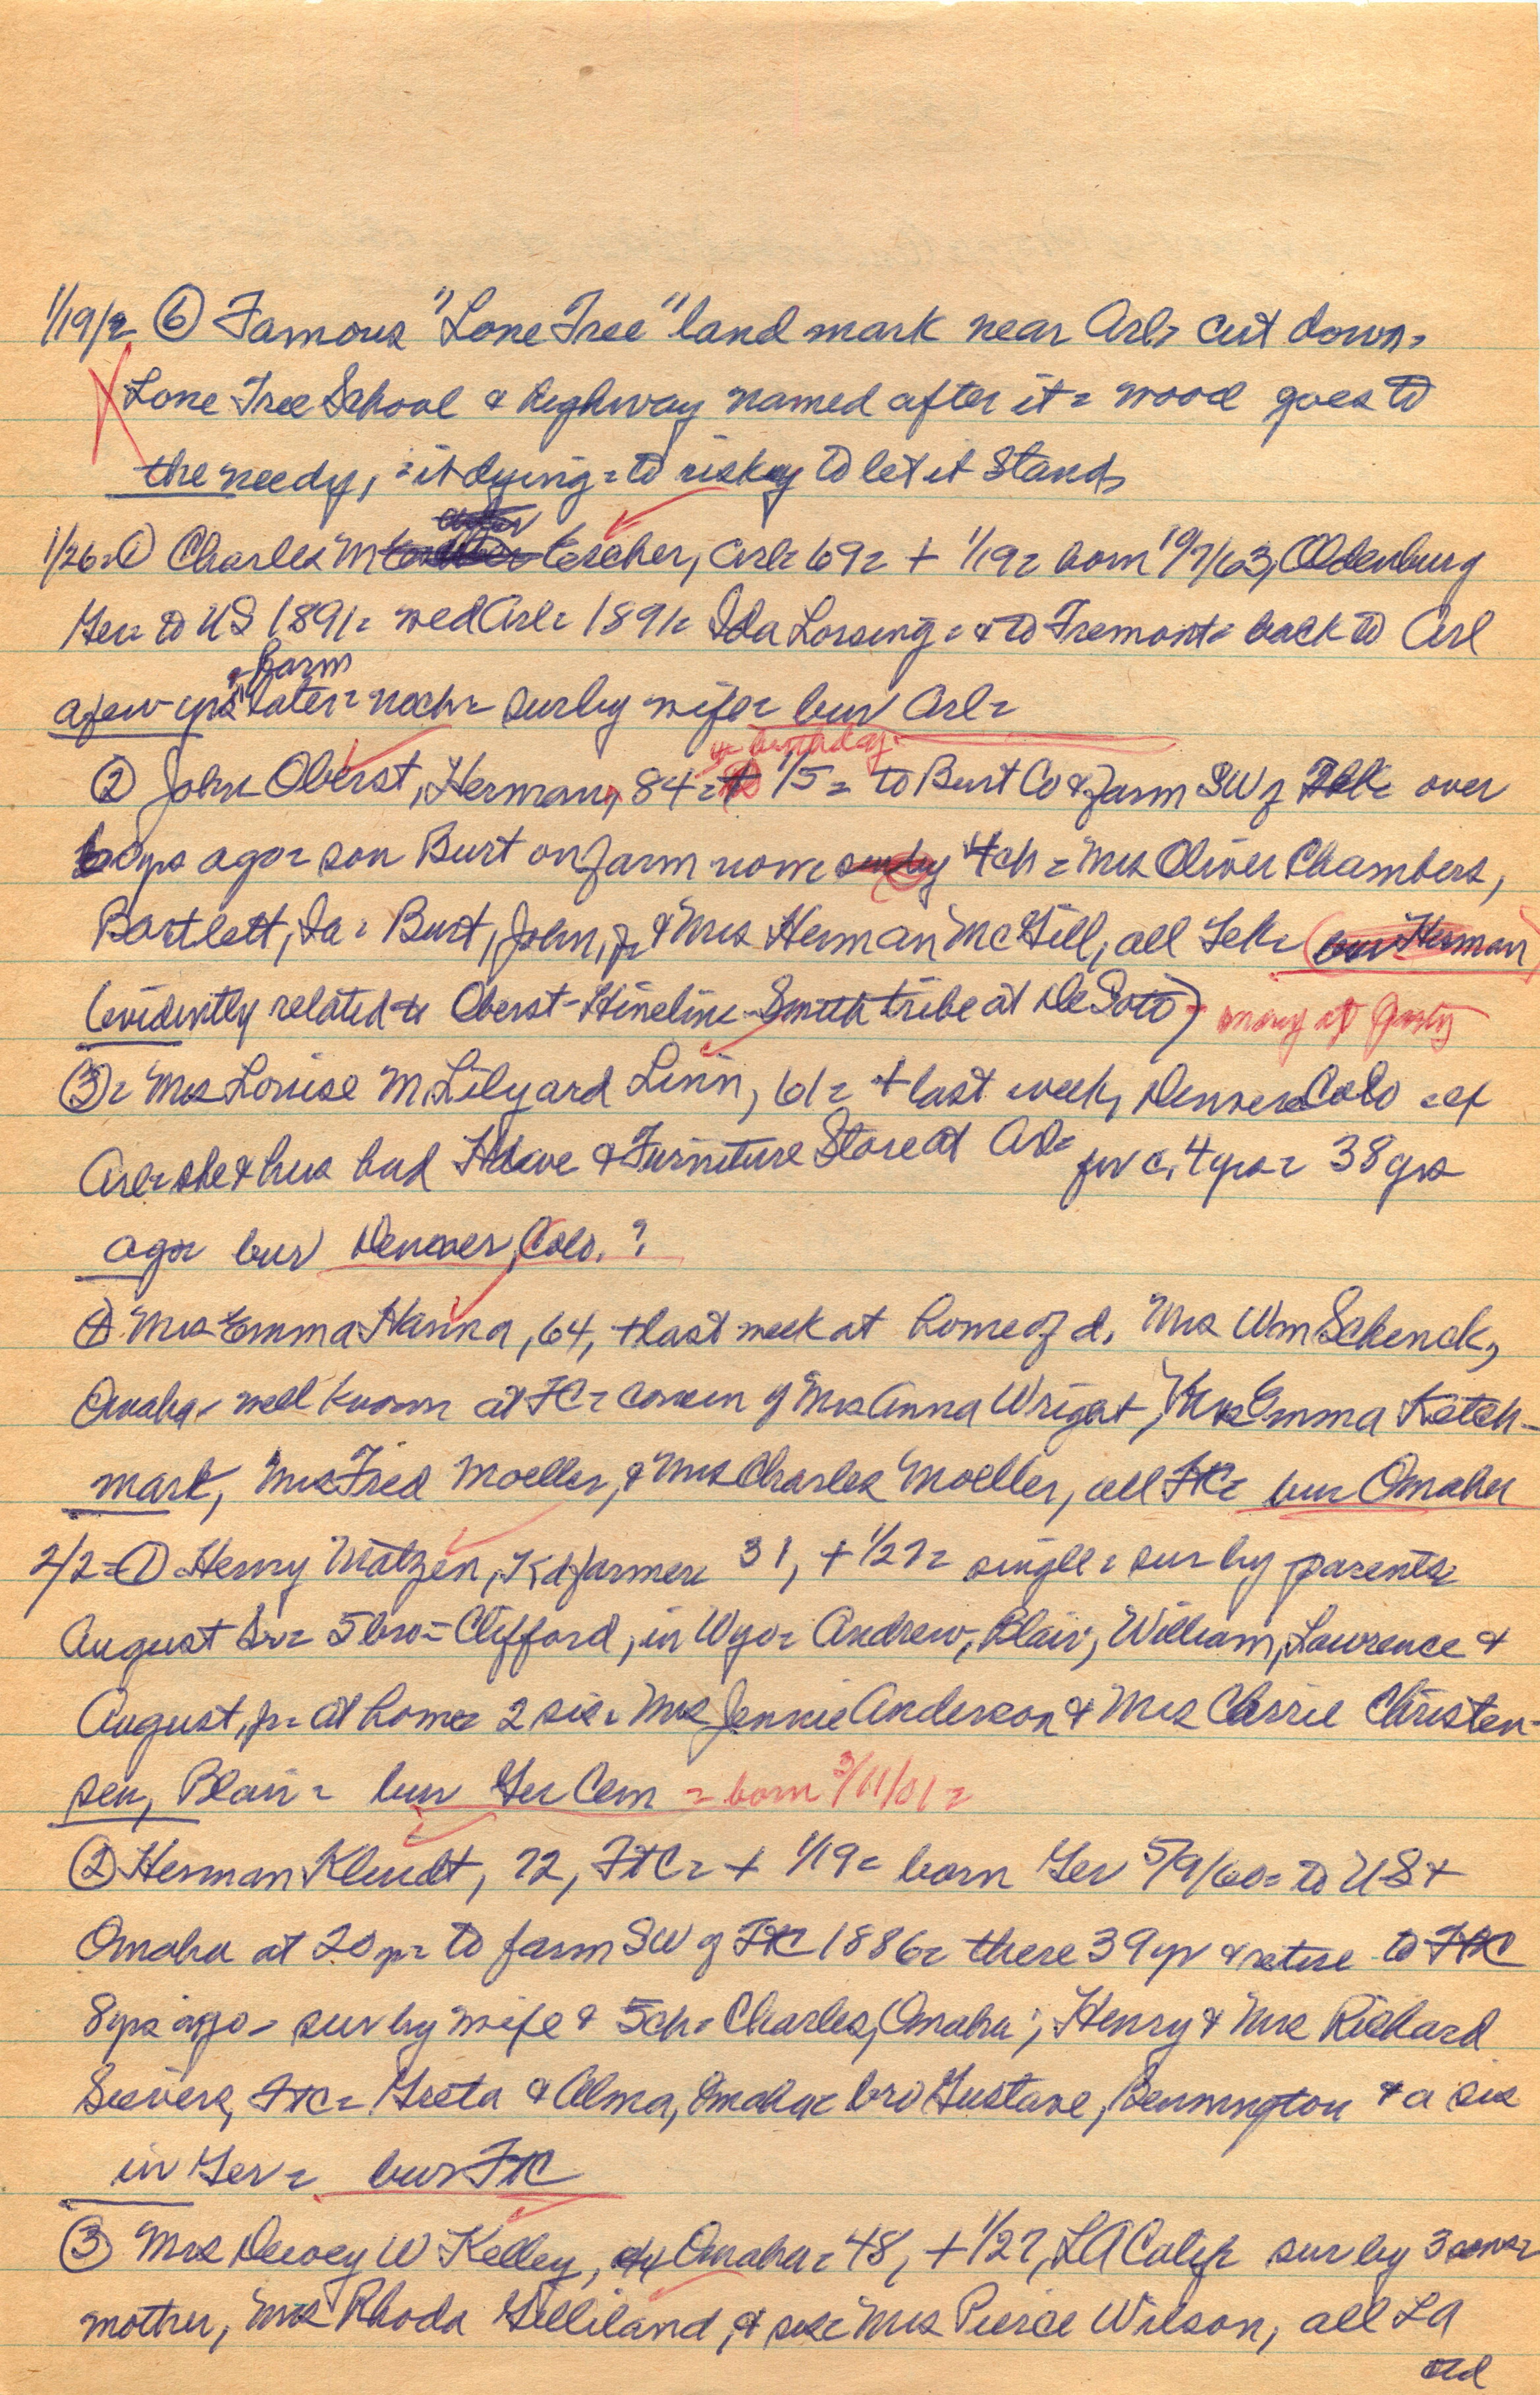 1/19/2 ⑥ Famous "Lone Tree" land mark near Arl= cut down=
Lone Tree School & highway named after it= wood goes to
the needy, =it dying= to riskey to let it stand
1/26=① Charles M Escher, Arl= 69= + 1/19= born 10/7/63, Oldenburg
Ger= to US 1891= wed Arl= 1891= Ida Lorsing= & to Fremont= back to Arl
& farm
a few yrs later= noch= sur by wife= bur Arl=
birthday
② John Oberst, Herman, 84= 1/5= to Burt Co & farm SW of Tek= over
60 yrs ago= son Burt on farm now 4 ch= Mrs Oliver Chambers,
Bartlett, Ia= Burt, John, jr & Mrs Herman McGill, all Tek= (bur Herman)
(evidently related to Oberst-Hineline-Smith tribe at DeSoto) - many at party
③= Mrs Louise M Lilyard Linn, 61= + last week, Denver Colo =ex
Arl= she & hus had Hdwe & Furniture Store at Arl= for c. 4 yrs= 38 yrs
ago= bur Denver, Colo. ?
④ Mrs Emma Hanna, 64, + last week at home of d. Mrs Wm Schenck,
Omaha= well known at FtC= cousin of Mrs Anna Wright, Mrs Emma Ketch-
mark, Mrs Fred Moeller, & Mrs Charles Moeller, all FtC= bur Omaha
2/2=① Henry Matzen, Kd farmer= 31, + 1/27= single= sur by parents=
August Sr= 5 bro= Clifford, in Wyo= Andrew, Blair, William, Lawrence &
August, jr= at home= 2 sis= Mrs Jennie Anderson & Mrs Carrie Christen-
sen, Blair= bur Ger Cem = born 3/11/01=
② Herman Klindt, 72, FtC= + 1/19= born Ger 5/9/60= to US &
Omaha at 20 yr= to farm SW of FtC 1886= there 39 yr & retire to FtC
8 yrs ago= sur by wife & 5 ch= Charles, Omaha; Henry & Mrs Richard
Sievers, FtC= Greta & Alma, Omaha= bro Gustave, Bennington & a sis
in Ger= bur FtC
③ Mrs Dewey W Kelley, ex Omaha= 48, + 1/27, LA Calif= sur by 3 sons=
mother, Mrs Rhoda Gilliland, & sis= Mrs Pierce Wilson, all LA